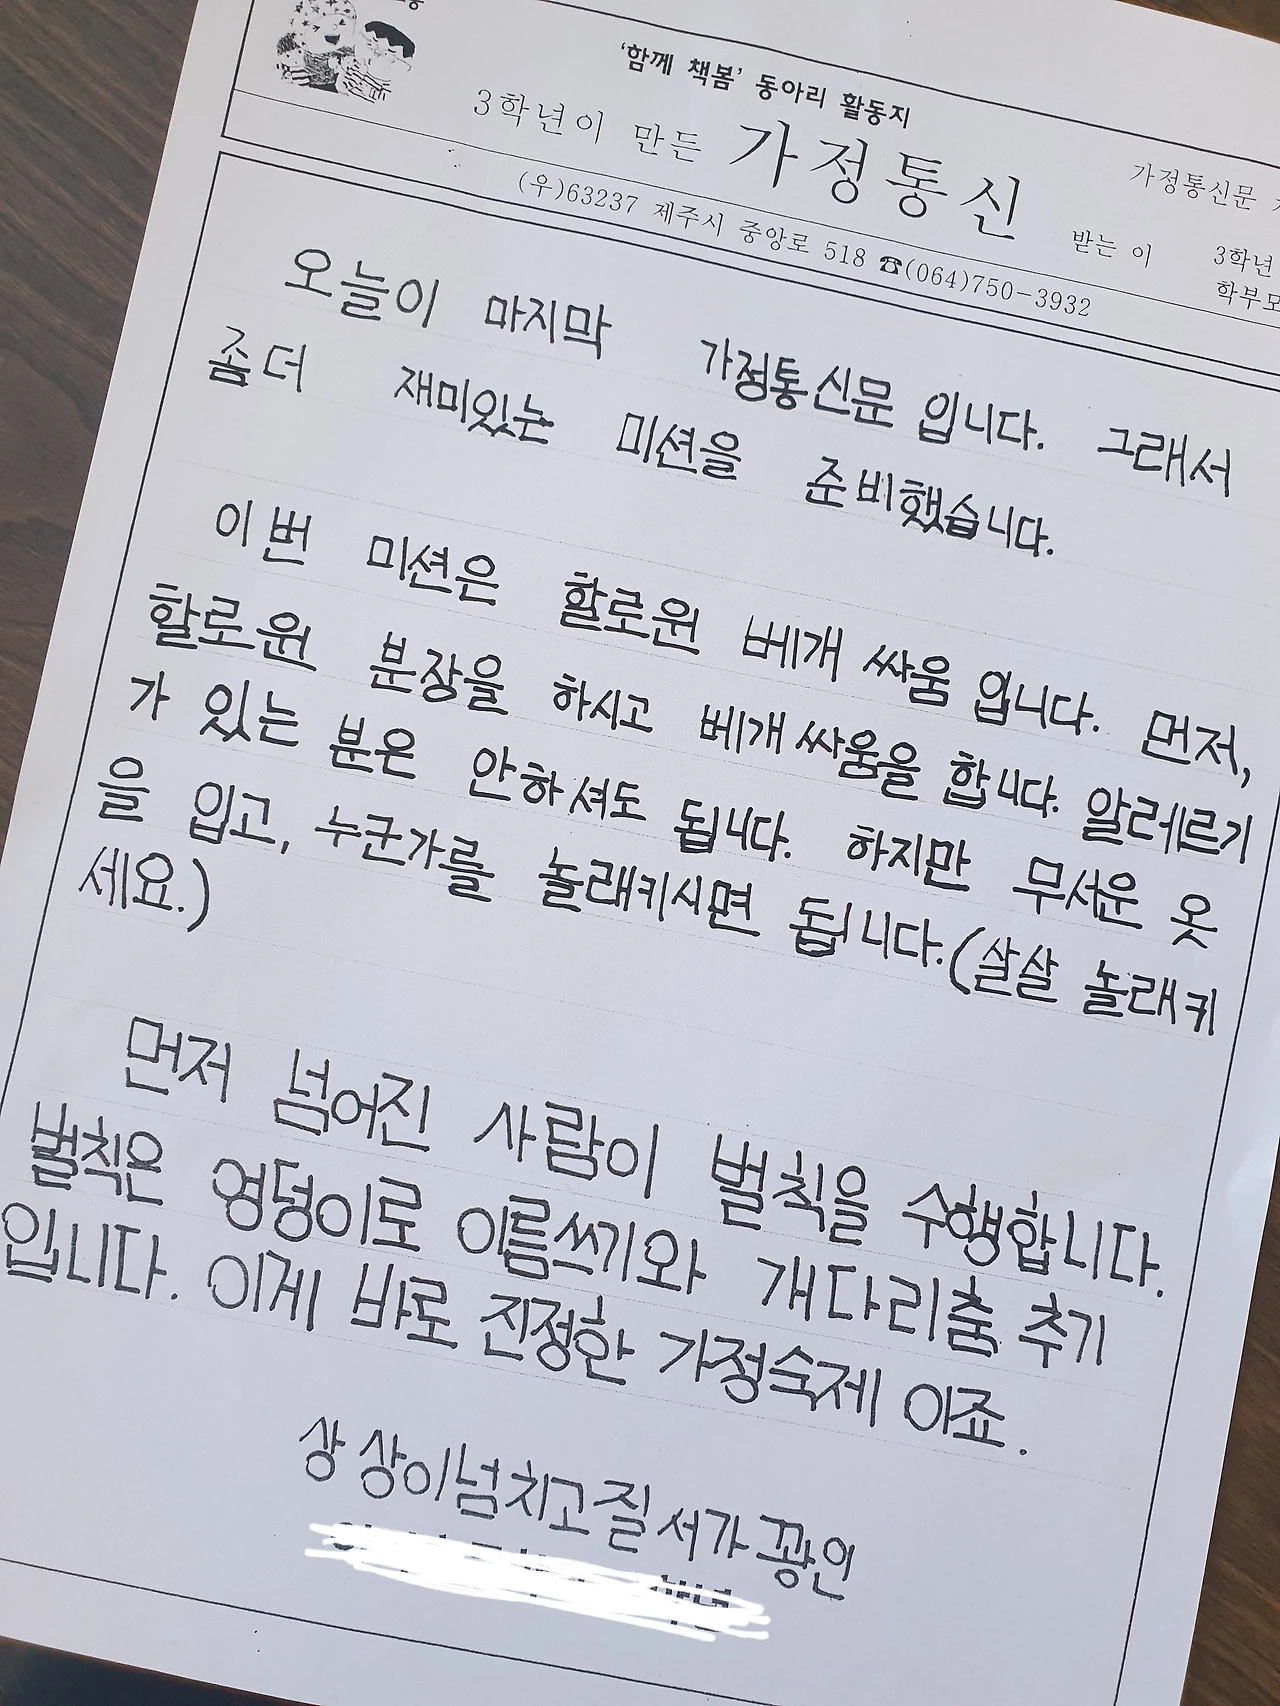 '함께 책봄' 동아리 활동지
3학년이 만든 가정통신
가정통신문
(우)63237 제주시 중앙로 518 ☎(064)750-3932
받는 이
3학년
학부모
오늘이 마지막 가정통신문 입니다. 그래서
좀더 재미있는 미션을 준비했습니다.
이번 미션은 할로윈 베개 싸움 입니다. 먼저,
할로윈 분장을 하시고 베개싸움을 합니다. 알레르기
가 있는 분은 안하셔도 됩니다. 하지만 무서운 옷
을 입고, 누군가를 놀래키시면 됩니다.(살살 놀래키
세요.)
먼저 넘어진 사람이 벌칙을 수행합니다.
벌칙은 엉덩이로 이름쓰기와 개다리춤 추기
입니다. 이게 바로 진정한 가정숙제 이죠.
상상이넘치고질서가꽝인